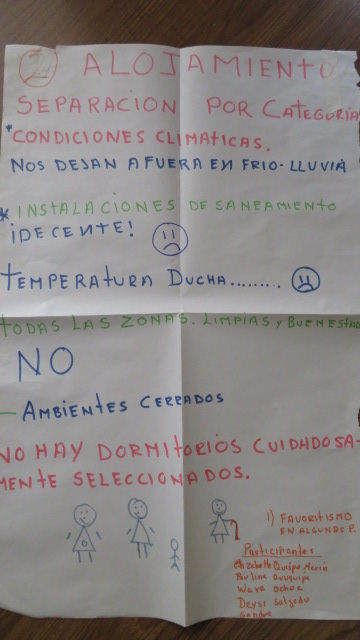 2 ALOJAMIENTO
SEPARACION POR CATEGORIA
*CONDICIONES CLIMATICAS.
NOS DEJAN AFUERA EN FRIO-LLUVIA
* INSTALACIONES DE SANEAMIENTO
¡DECENTE!
TEMPERATURA DUCHA.........
TODAS LAS ZONAS. LIMPIAS Y BUEN ESTADO
NO
- AMBIENTES CERRADOS
NO HAY DORMITORIOS CUIDADOSA-
MENTE SELECCIONADOS.
1) FAVORITISMO
EN ALGUNOS P.
Participantes
Elizabeth Quispe Marin
Paulina
Wara Ochoa
Deysi Salgado
Sandra